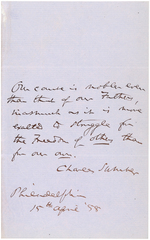 Our cause is nobler even
than that of our Fathers,
inasmuch as it is more
exalted to struggle for
the Freedom of others than
for our own.
Charles Sumner
Philadelphia
15th April '58